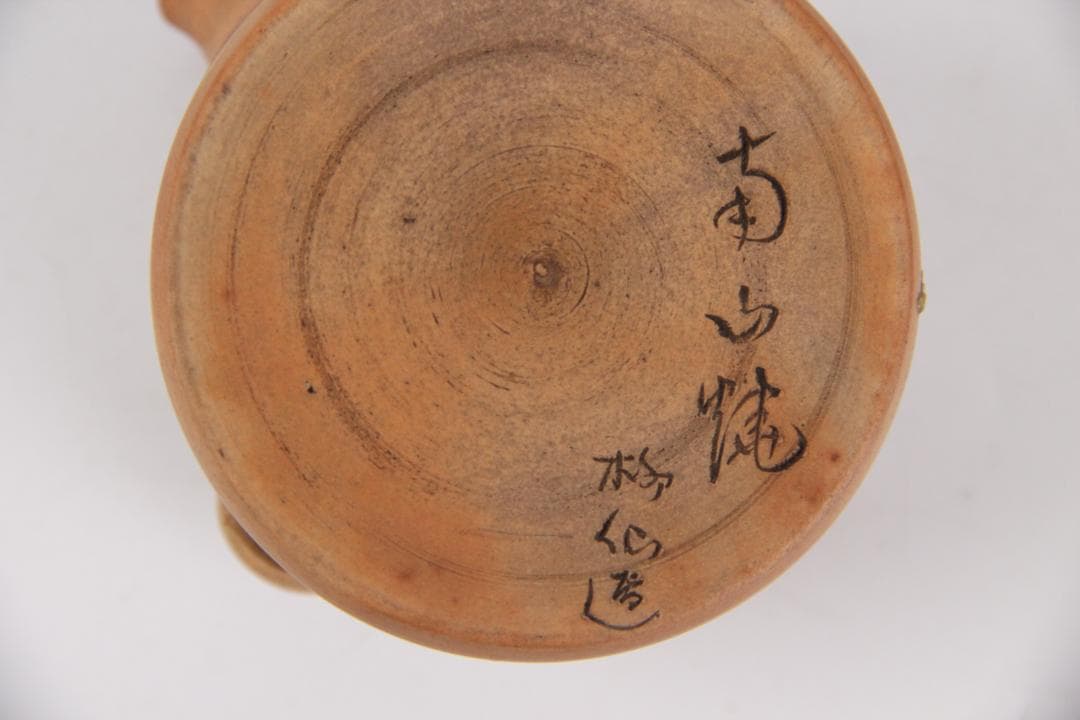 南山燒
柳仙造